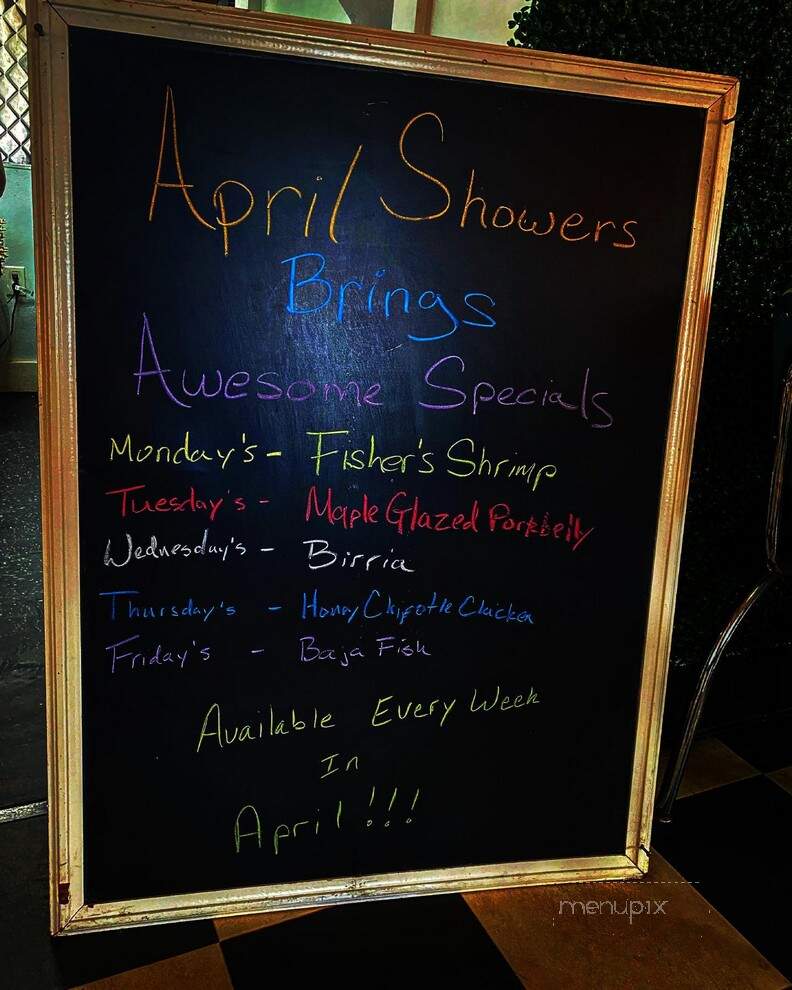 April Showers
Brings
Awesome Specials
Monday's - Fisher's Shrimp
Tuesday's - Maple Glazed Porkbelly
Wednesday's - Birria
Thursday's - Honey Chipotle Chicken
Friday's - Baja Fish
Available Every Week
In
April!!!
menupix